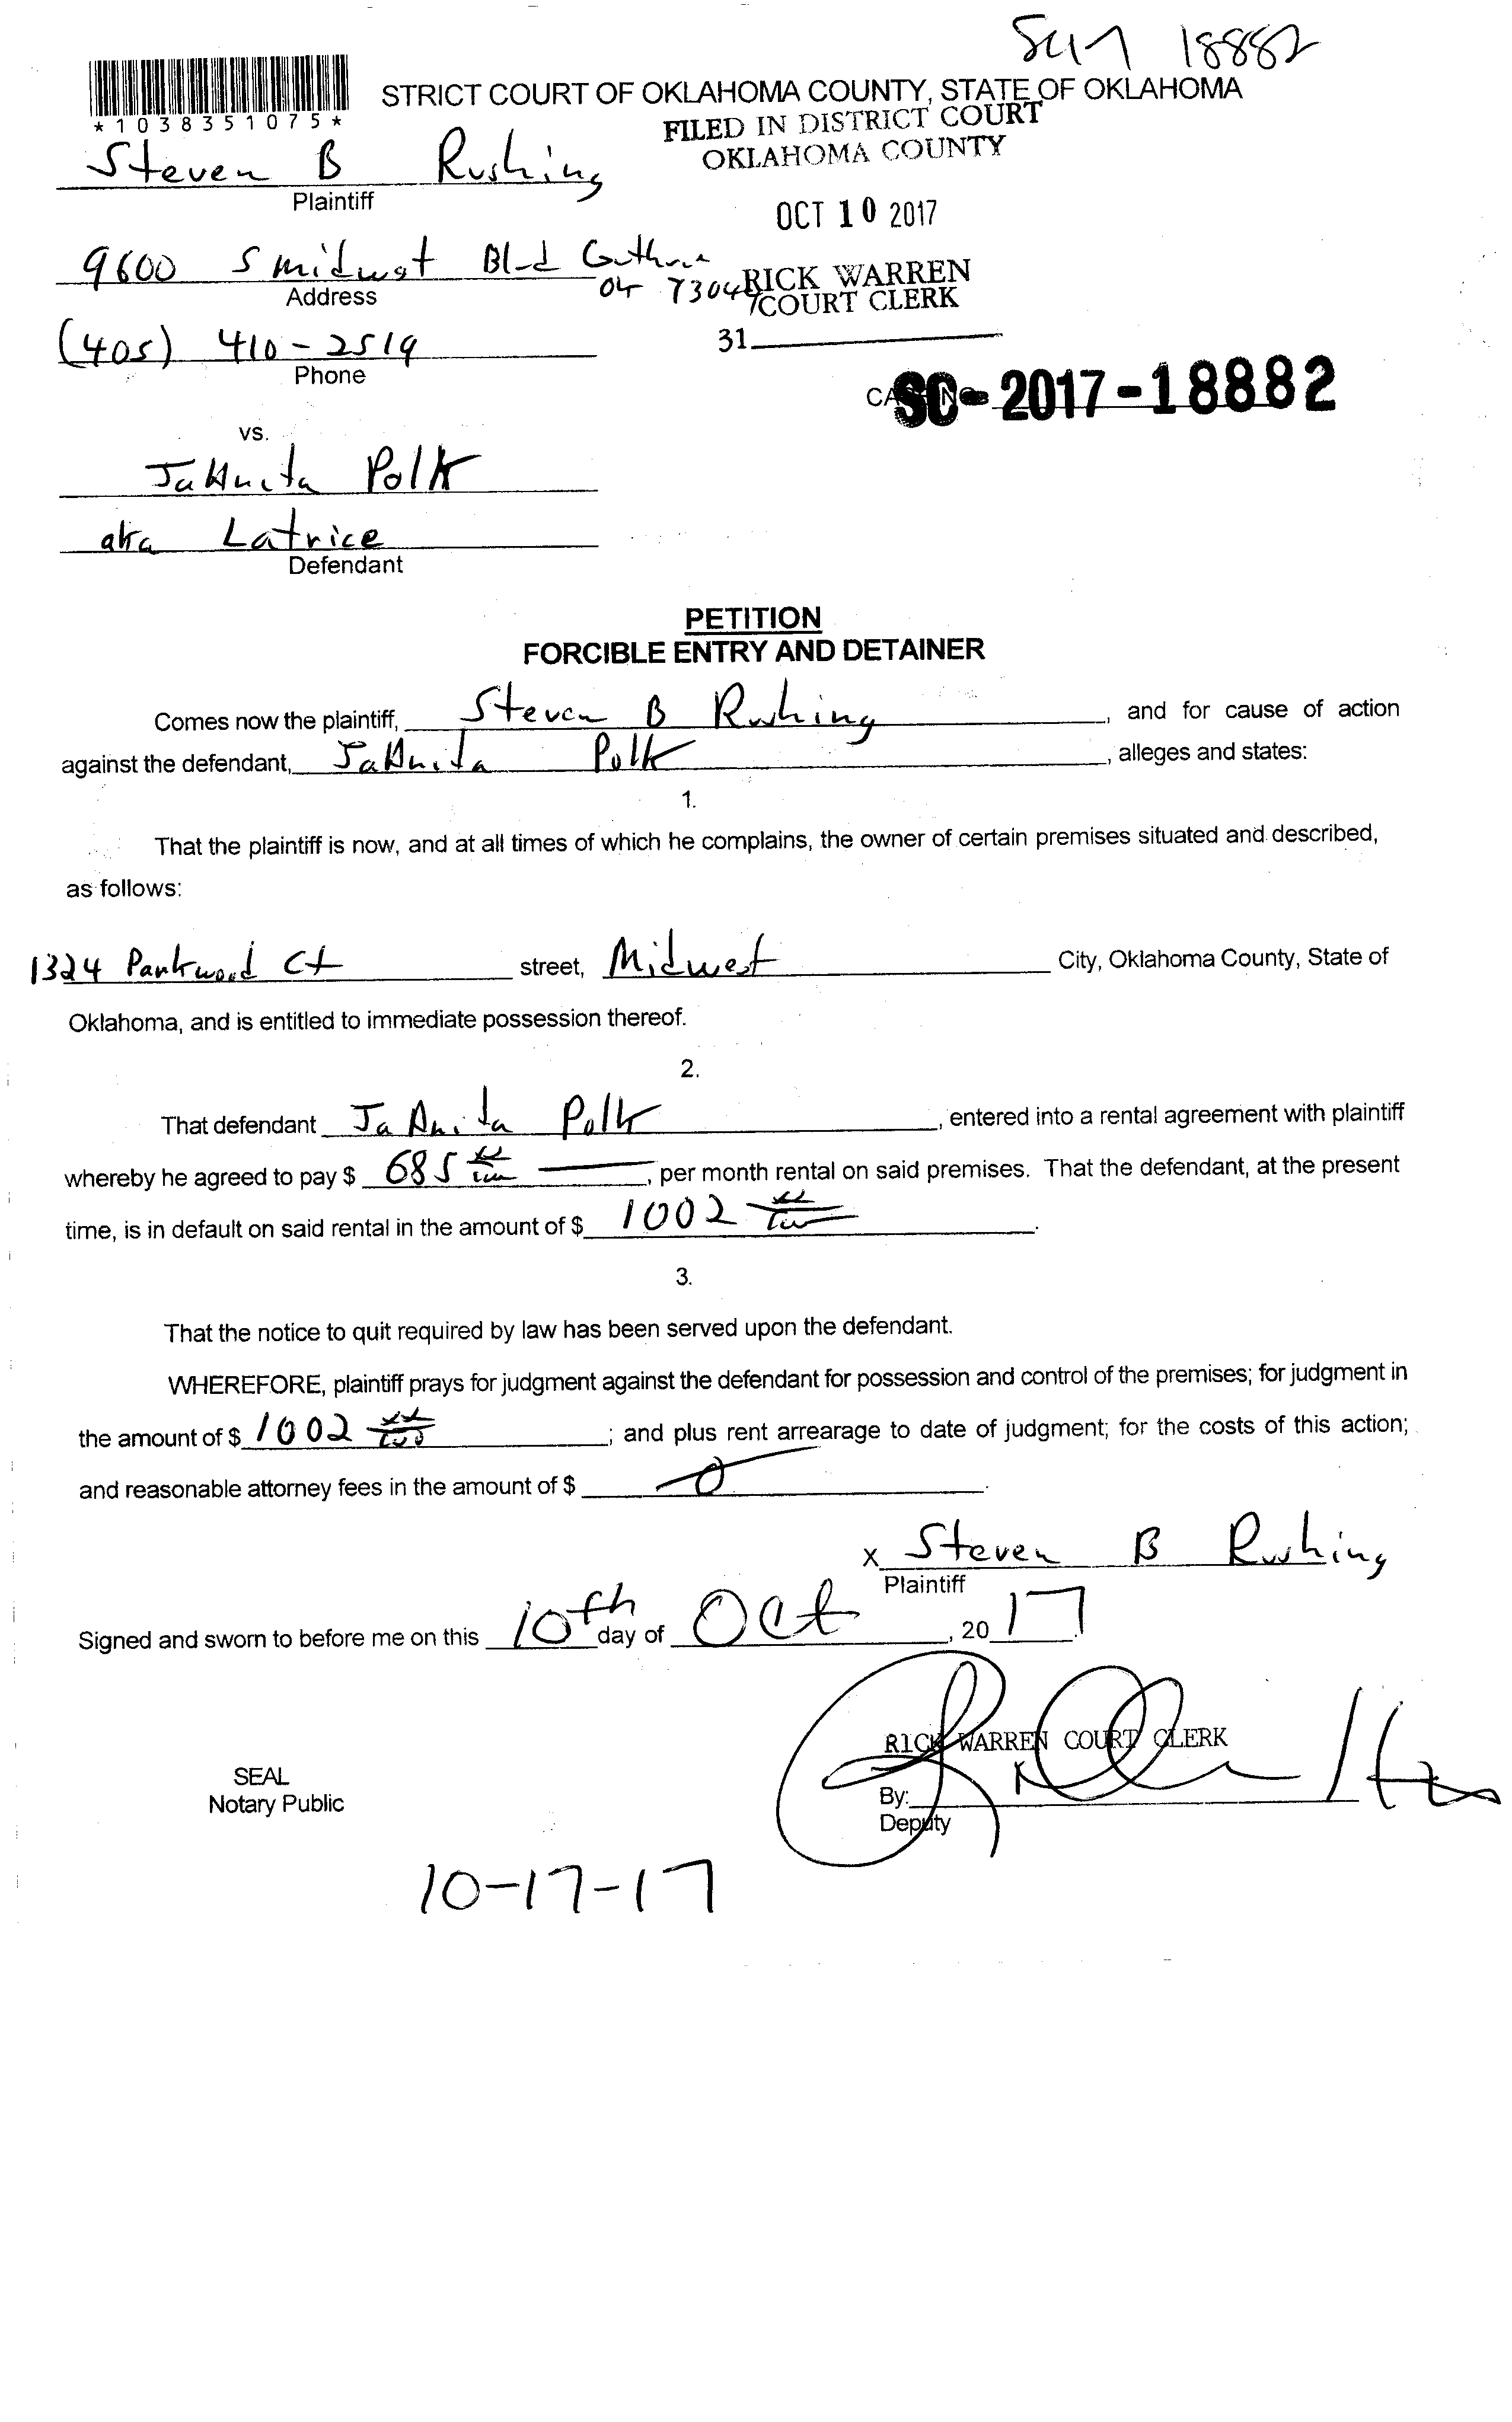 18882
STRICT COURT OF OKLAHOMA COUNTY, STATE OF OKLAHOMA
*1038351075*
FILED IN DISTRICT COURT
OKLAHOMA COUNTY
Steven B Rushing
Plaintiff
OCT 10 2017
9600 S Midwest Blvd Guthrie
Address
RICK WARREN
COURT CLERK
31
(405) 410-2519
Phone
SC-2017-18882
vs.
JaAnita Polk
aka Latrice
Defendant
PETITION
FORCIBLE ENTRY AND DETAINER
Comes now the plaintiff, Steven B Rushing, and for cause of action
against the defendant, JaAnita Polk, alleges and states:
1.
That the plaintiff is now, and at all times of which he complains, the owner of certain premises situated and described,
as follows:
1324 Parkwood Ct street, Midwest City, Oklahoma County, State of
Oklahoma, and is entitled to immediate possession thereof.
2.
That defendant JaAnita Polk, entered into a rental agreement with plaintiff
whereby he agreed to pay $ 685 xx/100, per month rental on said premises. That the defendant, at the present
time, is in default on said rental in the amount of $ 1002 xx/100.
3.
That the notice to quit required by law has been served upon the defendant.
WHEREFORE, plaintiff prays for judgment against the defendant for possession and control of the premises; for judgment in
the amount of $ 1002 xx/100; and plus rent arrearage to date of judgment; for the costs of this action;
and reasonable attorney fees in the amount of $ 0.
X Steven B Rushing
Plaintiff
Signed and sworn to before me on this 10th day of Oct, 2017
RICK WARREN COURT CLERK
SEAL
Notary Public
By:
Deputy
10-17-17